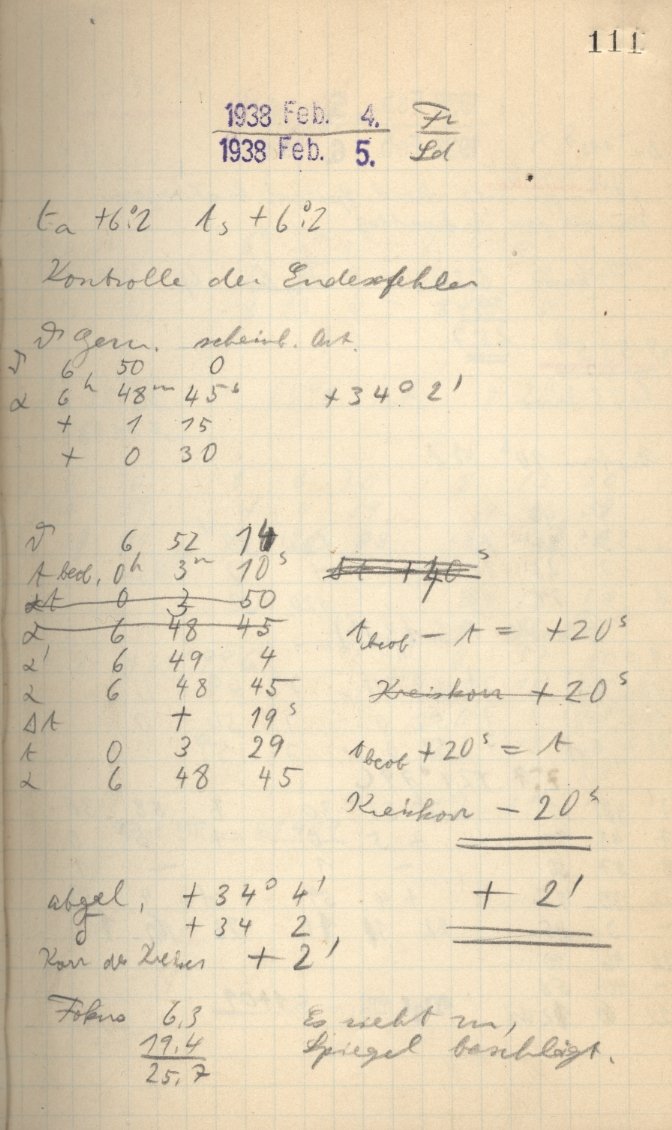 111
1938 Feb. 4. Fr
1938 Feb. 5. Sd
ta +6°.2 ts +6°.2
Kontrolle der Indexfehler
ϑ Gem. scheinb. Ort.
ϑ 6 50 0
α 6h 48m 45s +34° 2'
+ 1 15
+ 0 30
ϑ 6 52 14
t beob. 0h 3m 10s Δt +40s
Δt 0 3 50
α 6 48 45 tbeob - t = +20s
α' 6 49 4
α 6 48 45 Kreiskorr +20s
Δt + 19s
t 0 3 29 tbeob +20s = t
α 6 48 45
Kreiskorr - 20s
abgel. +34° 4' + 2'
+34 2
Korr des Kreises + 2'
Fokus 6,3 Es zieht zu,
19,4 Spiegel beschlägt.
25,7